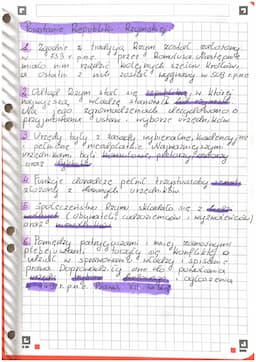 Powstanie Republiki Rzymskiej
1. Zgodnie z tradycją Rzym został założony
w 753 r. p.n.e. przez Romulusa. Następnie
miało nim rządzić kolejnych sześciu królów,
a ostatni z nich został wygnany w 509 r. p.n.e
2. Odtąd Rzym stał się republiką, w której
najwyższą władzę stanowił
Na jego zgromadzeniach decydowano o
przyjmowaniu ustaw i wyborze urzędników
3. Urzędy były z zasady wybieralne, kadencyjne
i pełnione nieodpłatnie. Najważniejszymi
urzędnikami byli konsulowie, pretorzy, cenzorzy
oraz
4. Funkcje doradcze pełnił trzystuosoby senat
złożony z dawnych urzędników
5. Społeczeństwo Rzymu składało się z
(obywateli, cudzoziemców i wyzwoleńców)
oraz
6. Pomiędzy patrycjuszami i mniej zamożnymi
plebejuszami toczyły się konflikty o
udział w sprawowaniu władzy i spisanie
prawa. Doprowadziły one do powstania
urzędu i ogłoszenia
w 449 r. p.n.e. Prawa XII tablic